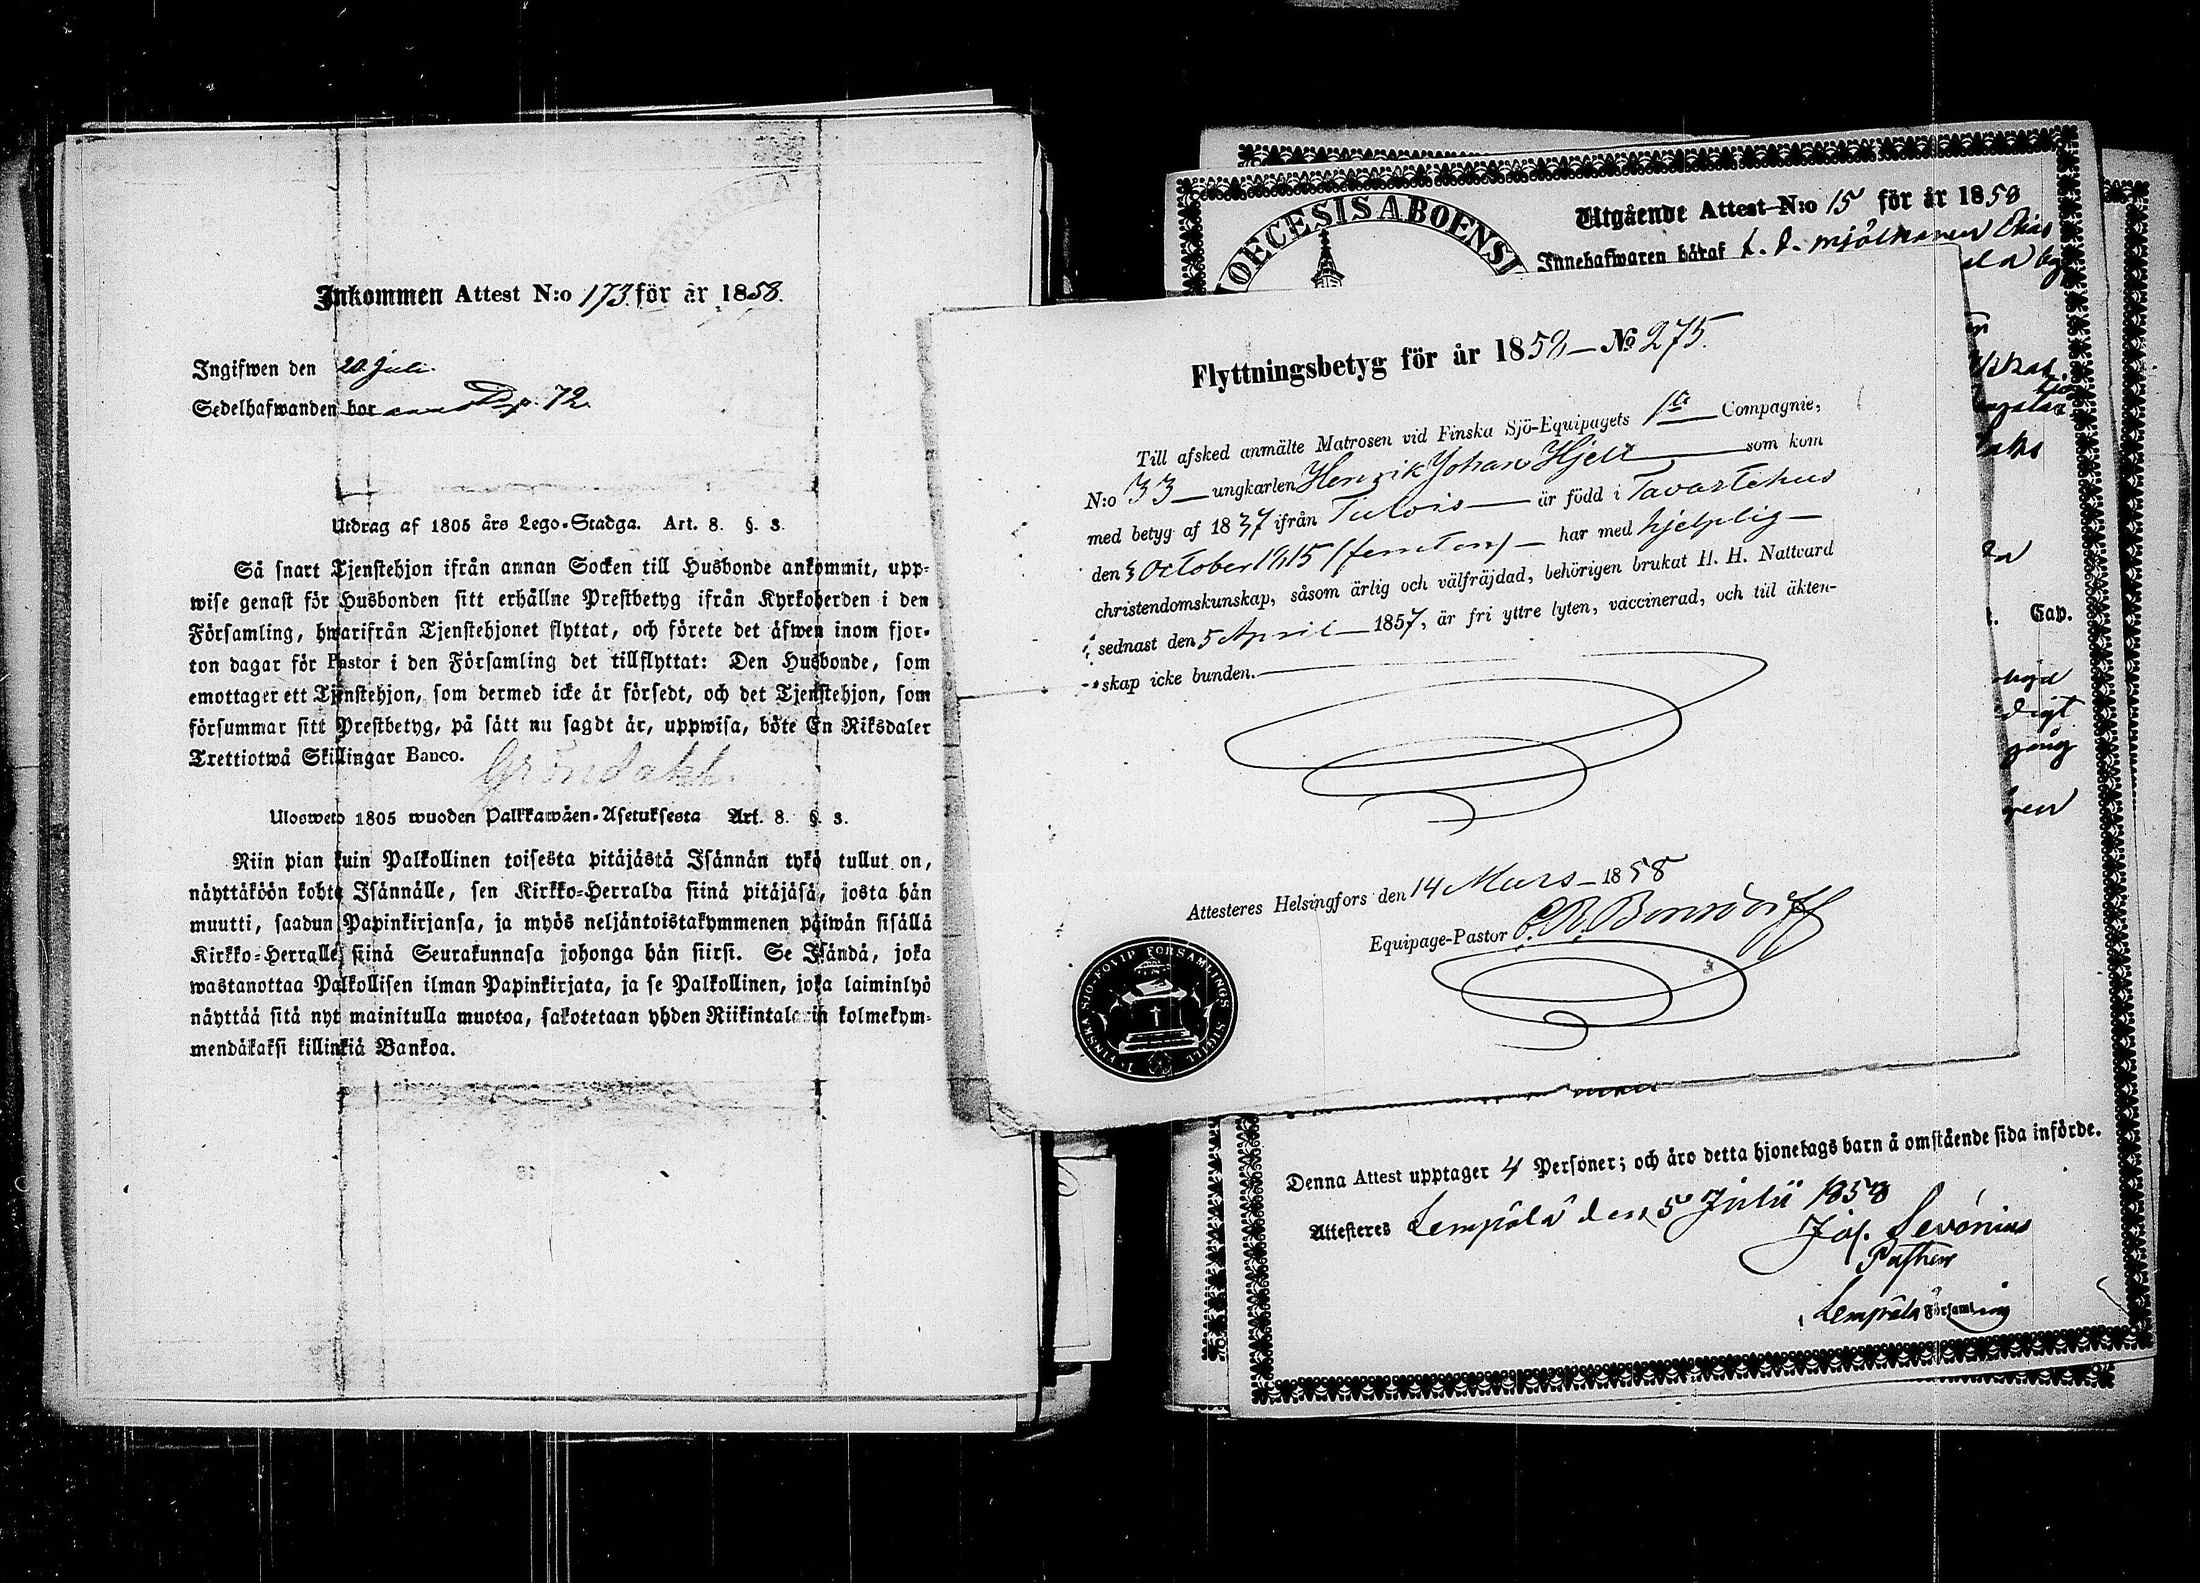 Inkommen Attest N:o 173 för år 1858.
Ingifwen den 20 Juli.
Sedelhafwanden bor p. 72.
Utdrag af 1805 års Lego-Stadga. Art. 8. §. 3.
Så snart Tjenstehjon ifrån annan Socken till Husbonde ankommit, upp-
wise genast för Husbonden sitt erhållne Prestbetyg ifrån Kyrkoherden i den
Församling, hwarifrån Tjenstehjonet flyttat, och förete det äfwen inom fjor-
ton dagar för Pastor i den Församling det tillflyttat: Den Husbonde, som
emottager ett Tjenstehjon, som dermed icke är försedt, och det Tjenstehjon, som
försummar sitt Prestbetyg, på sätt nu sagdt är, uppwisa, böte En Riksdaler
Trettiotwå Skillingar Banco.
Gröndahl.
Ulosweto 1805 wuoden Palkkawäen-Asetuksesta Art. 8. §. 3.
Niin pian kuin Palkollinen toisesta pitäjästä Isännän tykö tullut on,
näyttäköön kohta Isännälle, sen Kirkko-Herralda siinä pitäjäsä, josta hän
muutti, saadun Papinkirjansa, ja myös neljäntoistakymmenen päiwän sisällä
Kirkko-Herralle siinä Seurakunnasa johonga hän siirsi. Se Isändä, joka
wastanottaa Palkollisen ilman Papinkirjata, ja se Palkollinen, joka laiminlyö
näyttää sitä nyt mainitulla muotoa, sakotetaan yhden Riikintalarin kolmekym-
mendäkaksi killinkiä Bankoa.
DIOECESIS ABOENSI
Utgående Attest N:o 15 för år 1858
Innehafwaren häraf
Flyttningsbetyg för år 1858 — No 275.
Till afsked anmälte Matrosen vid Finska Sjö-Equipagets 1sta Compagnie,
N:o 33 — ungkarlen Henrik Johan Hjelt — som kom
med betyg af 1837 ifrån Tulois — är född i Tavastehus
den 3 October 1815 (femton) — har med hjelplig —
christendomskunskap, såsom ärlig och välfräjdad, behörigen brukat H. H. Nattvard
sednast den 5 April — 1857, är fri yttre lyten, vaccinerad, och till äkten-
skap icke bunden.
Attesteres Helsingfors den 14 Mars — 1858
Equipage-Pastor C. R. Bonsdorff
FINSKA SJÖ-EQVIP. FÖRSAMLINGS SIGILL
Cap.
Denna Attest upptager 4 Personer; och äro detta hjonelags barn å omstående sida införde.
Attesteres Lempälä den 5 Julii 1858
Jos. Sevónius
Pastor
Lempälä Församling